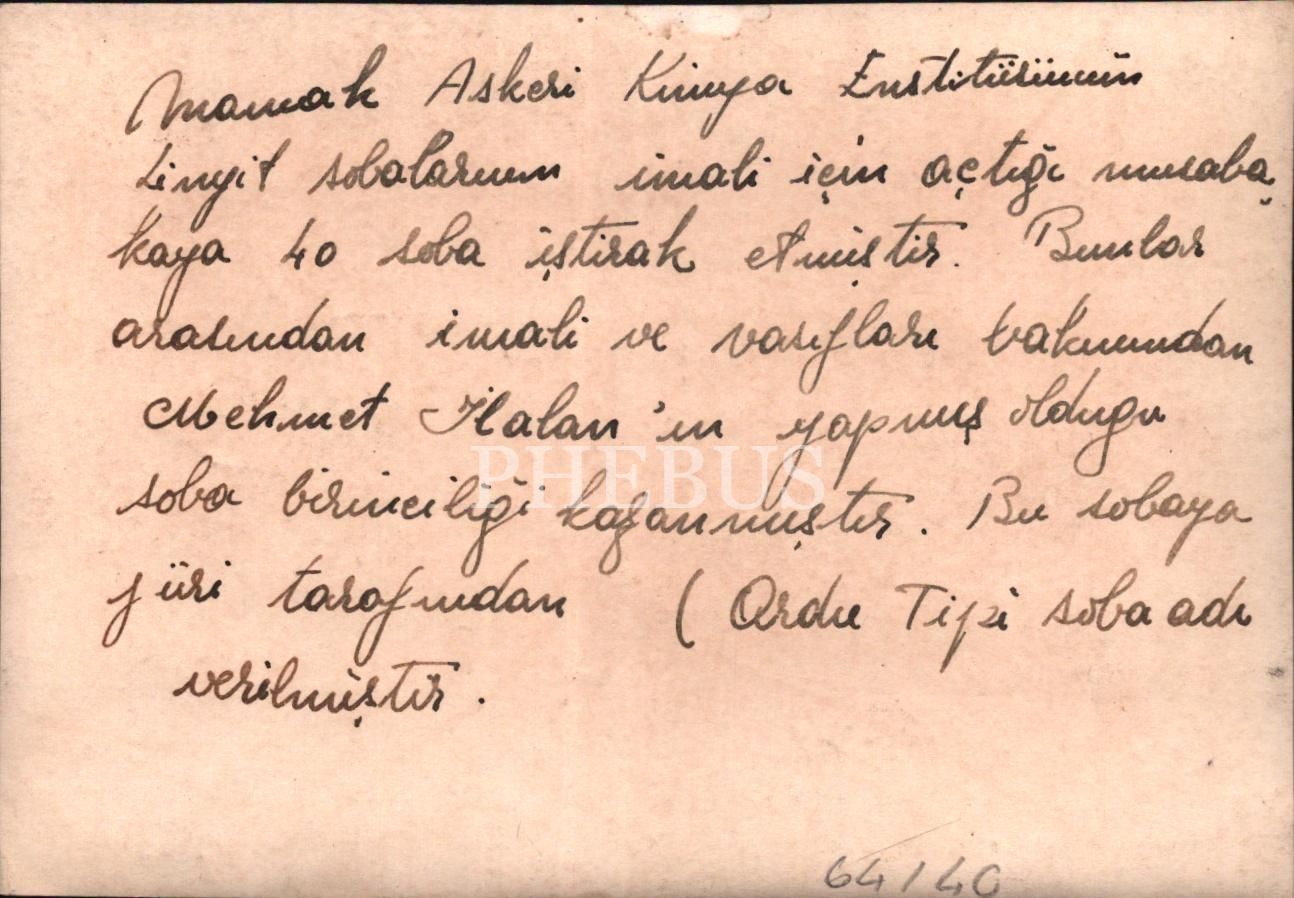 Mamak Askeri Kimya Enstitüsünün
Linyit sobalarının imali için açtığı musaba
kaya 40 soba iştirak etmiştir. Bunlar
arasından imali ve vasıfları bakımından
Mehmet İlalan'ın yapmış olduğu
PHEBUS
soba birinciliği kazanmıştır. Bu sobaya
jüri tarafından ( Ordu Tipi soba adı
verilmiştir.
64/40